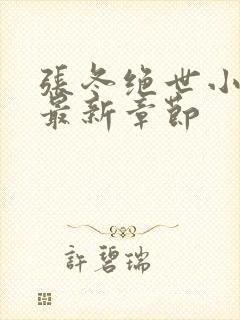 張冬绝世小
最新章節
許碧瑞